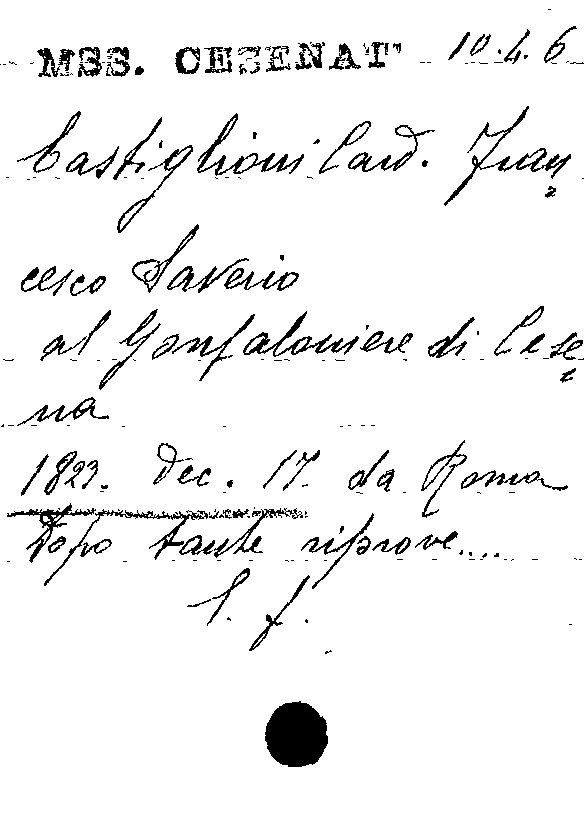 MSS. CESENAT 10.4.6
Castiglioni Card. Fran
cesco Saverio
al Gonfaloniere di Cese
na
1823. Dec. 17. da Roma
Dopo tante riprove....
l. f.